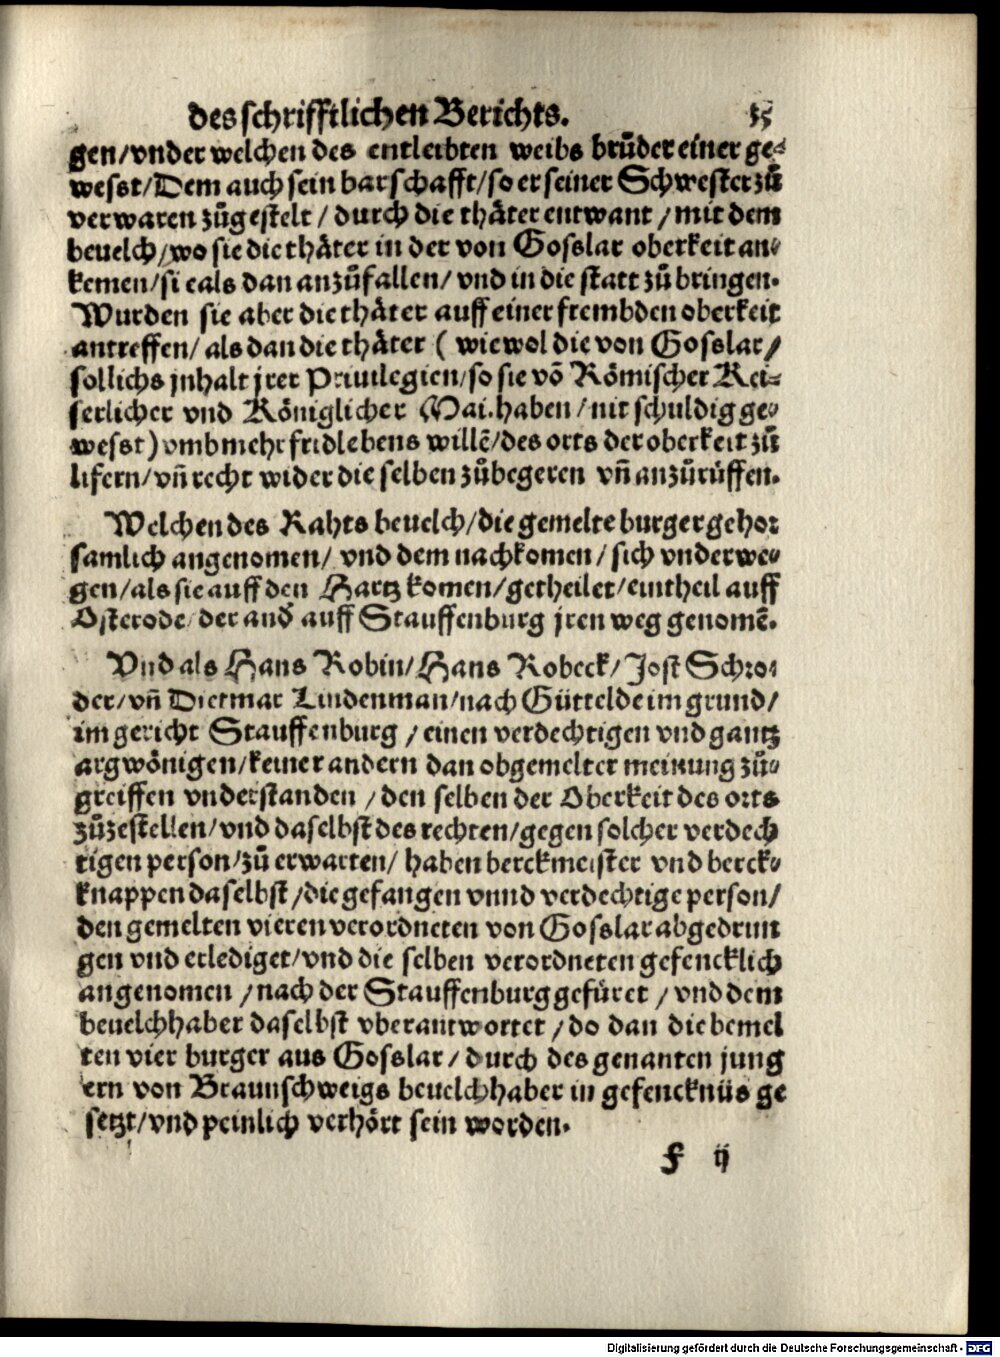 des schrifftlichen Berichts.
gen/vnder welchen des entleibten weibs brůder einer ge-
wesst/Dem auch sein barschafft/so er seiner Schwester zů
verwaren zůgestelt/durch die thäter entwant/mit dem
beuelch/wo sie die thäter in der von Gosslar oberkeit an-
kemen/sie als dan anzůfallen/vnd in die statt zů bringen.
Wurden sie aber die thäter auff einer frembden oberkeit
antreffen/als dan die thäter (wiewol die von Gosslar/
sollichs jnhalt jrer Priuilegien/so sie võ Römischer Kei-
serlicher vnd Königlicher Mai.haben/nit schuldig ge-
wesst) vmb mehr fridlebens willẽ/des orts der oberkeit zů
lifern/vñ recht wider die selben zůbegeren vñ anzůrüffen.
Welchen des Rahts beuelch/die gemelte burger gehor
samlich angenomen/vnd dem nachkomen/sich vnderwe-
gen/als sie auff den Hartz komen/getheilet/ein theil auff
Osterode/der and auff Stauffenburg jren weg genomẽ.
Vnd als Hans Robin/Hans Robeck/Jost Schro-
der/vñ Dietmar Lindenman/nach Güttelde im grund/
im gericht Stauffenburg/einen verdechtigen vnd gantz
argwönigen/keiner andern dan obgemelter meinung zů-
greiffen vnderstanden/den selben der Oberkeit des orts
zůzestellen/vnd daselbst des rechten/gegen solcher verdech
tigen person/zů erwarten/haben berckmeister vnd berck-
knappen daselbst/die gefangen vnnd verdechtige person/
den gemelten vieren verordneten von Gosslar abgedrun
gen vnd erlediget/vnd die selben verordneten gefencklich
angenomen/nach der Stauffenburg gefüret/vnd dem
beuelchhaber daselbst vberantwortet/do dan die bemel
ten vier burger aus Gosslar/durch des genanten jung
ern von Braunschweigs beuelchhaber in gefencknüs ge
setzt/vnd peinlich verhört sein worden.
f ij
Digitalisierung gefördert durch die Deutsche Forschungsgemeinschaft - DFG